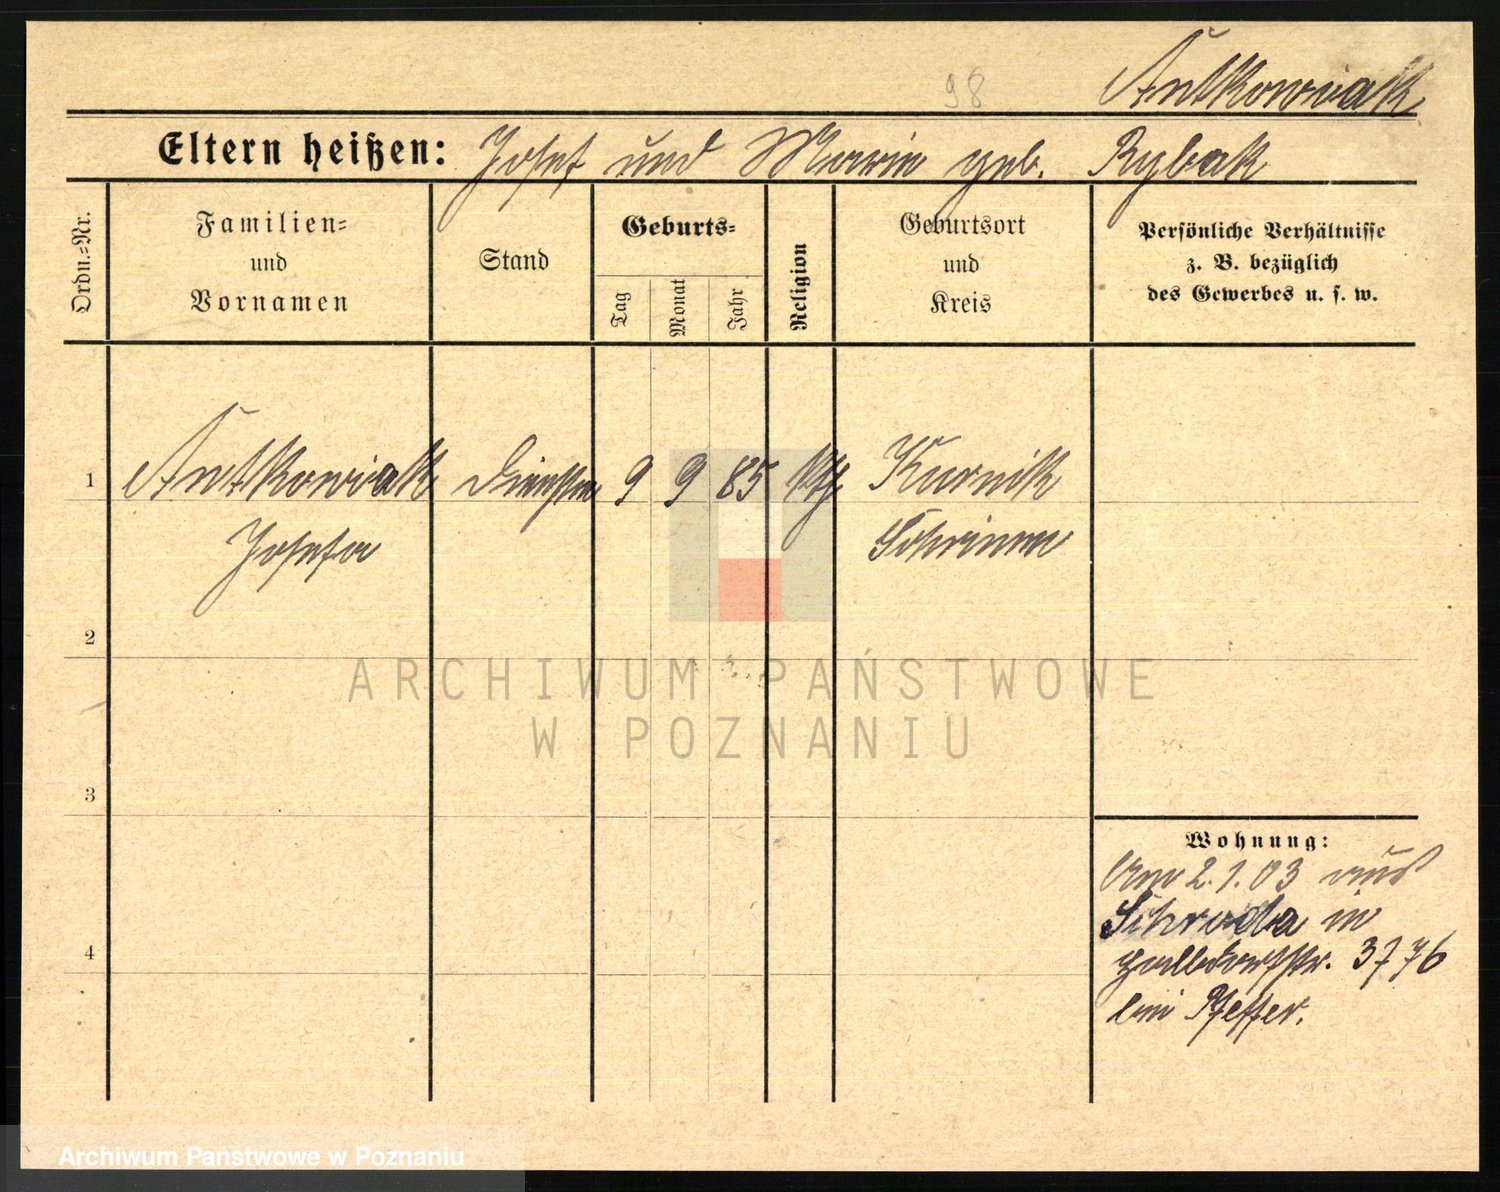 98 Antkowiak
Eltern heißen: Josef und Marie geb. Rybak
Ordn.=Nr.
Familien=
und
Vornamen
Stand
Geburts=
Tag
Monat
Jahr
Religion
Geburtsort
und
Kreis
Persönliche Verhältnisse
z. B. bezüglich
des Gewerbes u. s. w.
1 Antkowiak 9 9 85 kth Kurnik
Josefa Schrimm
2
ARCHIWUM PAŃSTWOWE
W POZNANIU
3
Wohnung:
Am 2.1.03 aus
Schroda in
4
bei Pfeffer.
Archiwum Państwowe w Poznaniu